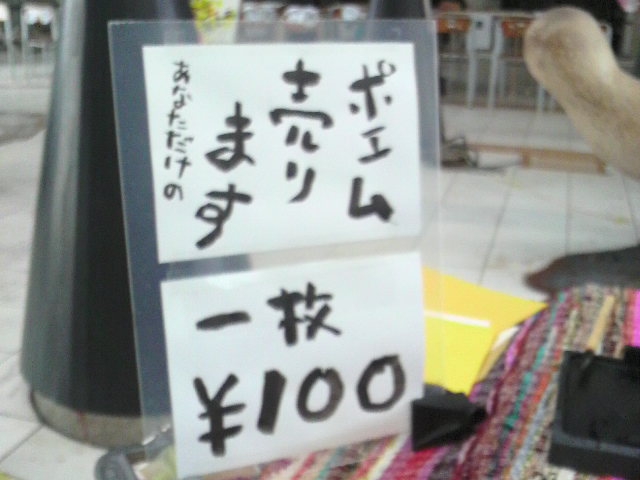 ポエム
売り
ます
あなただけの
一枚
¥100